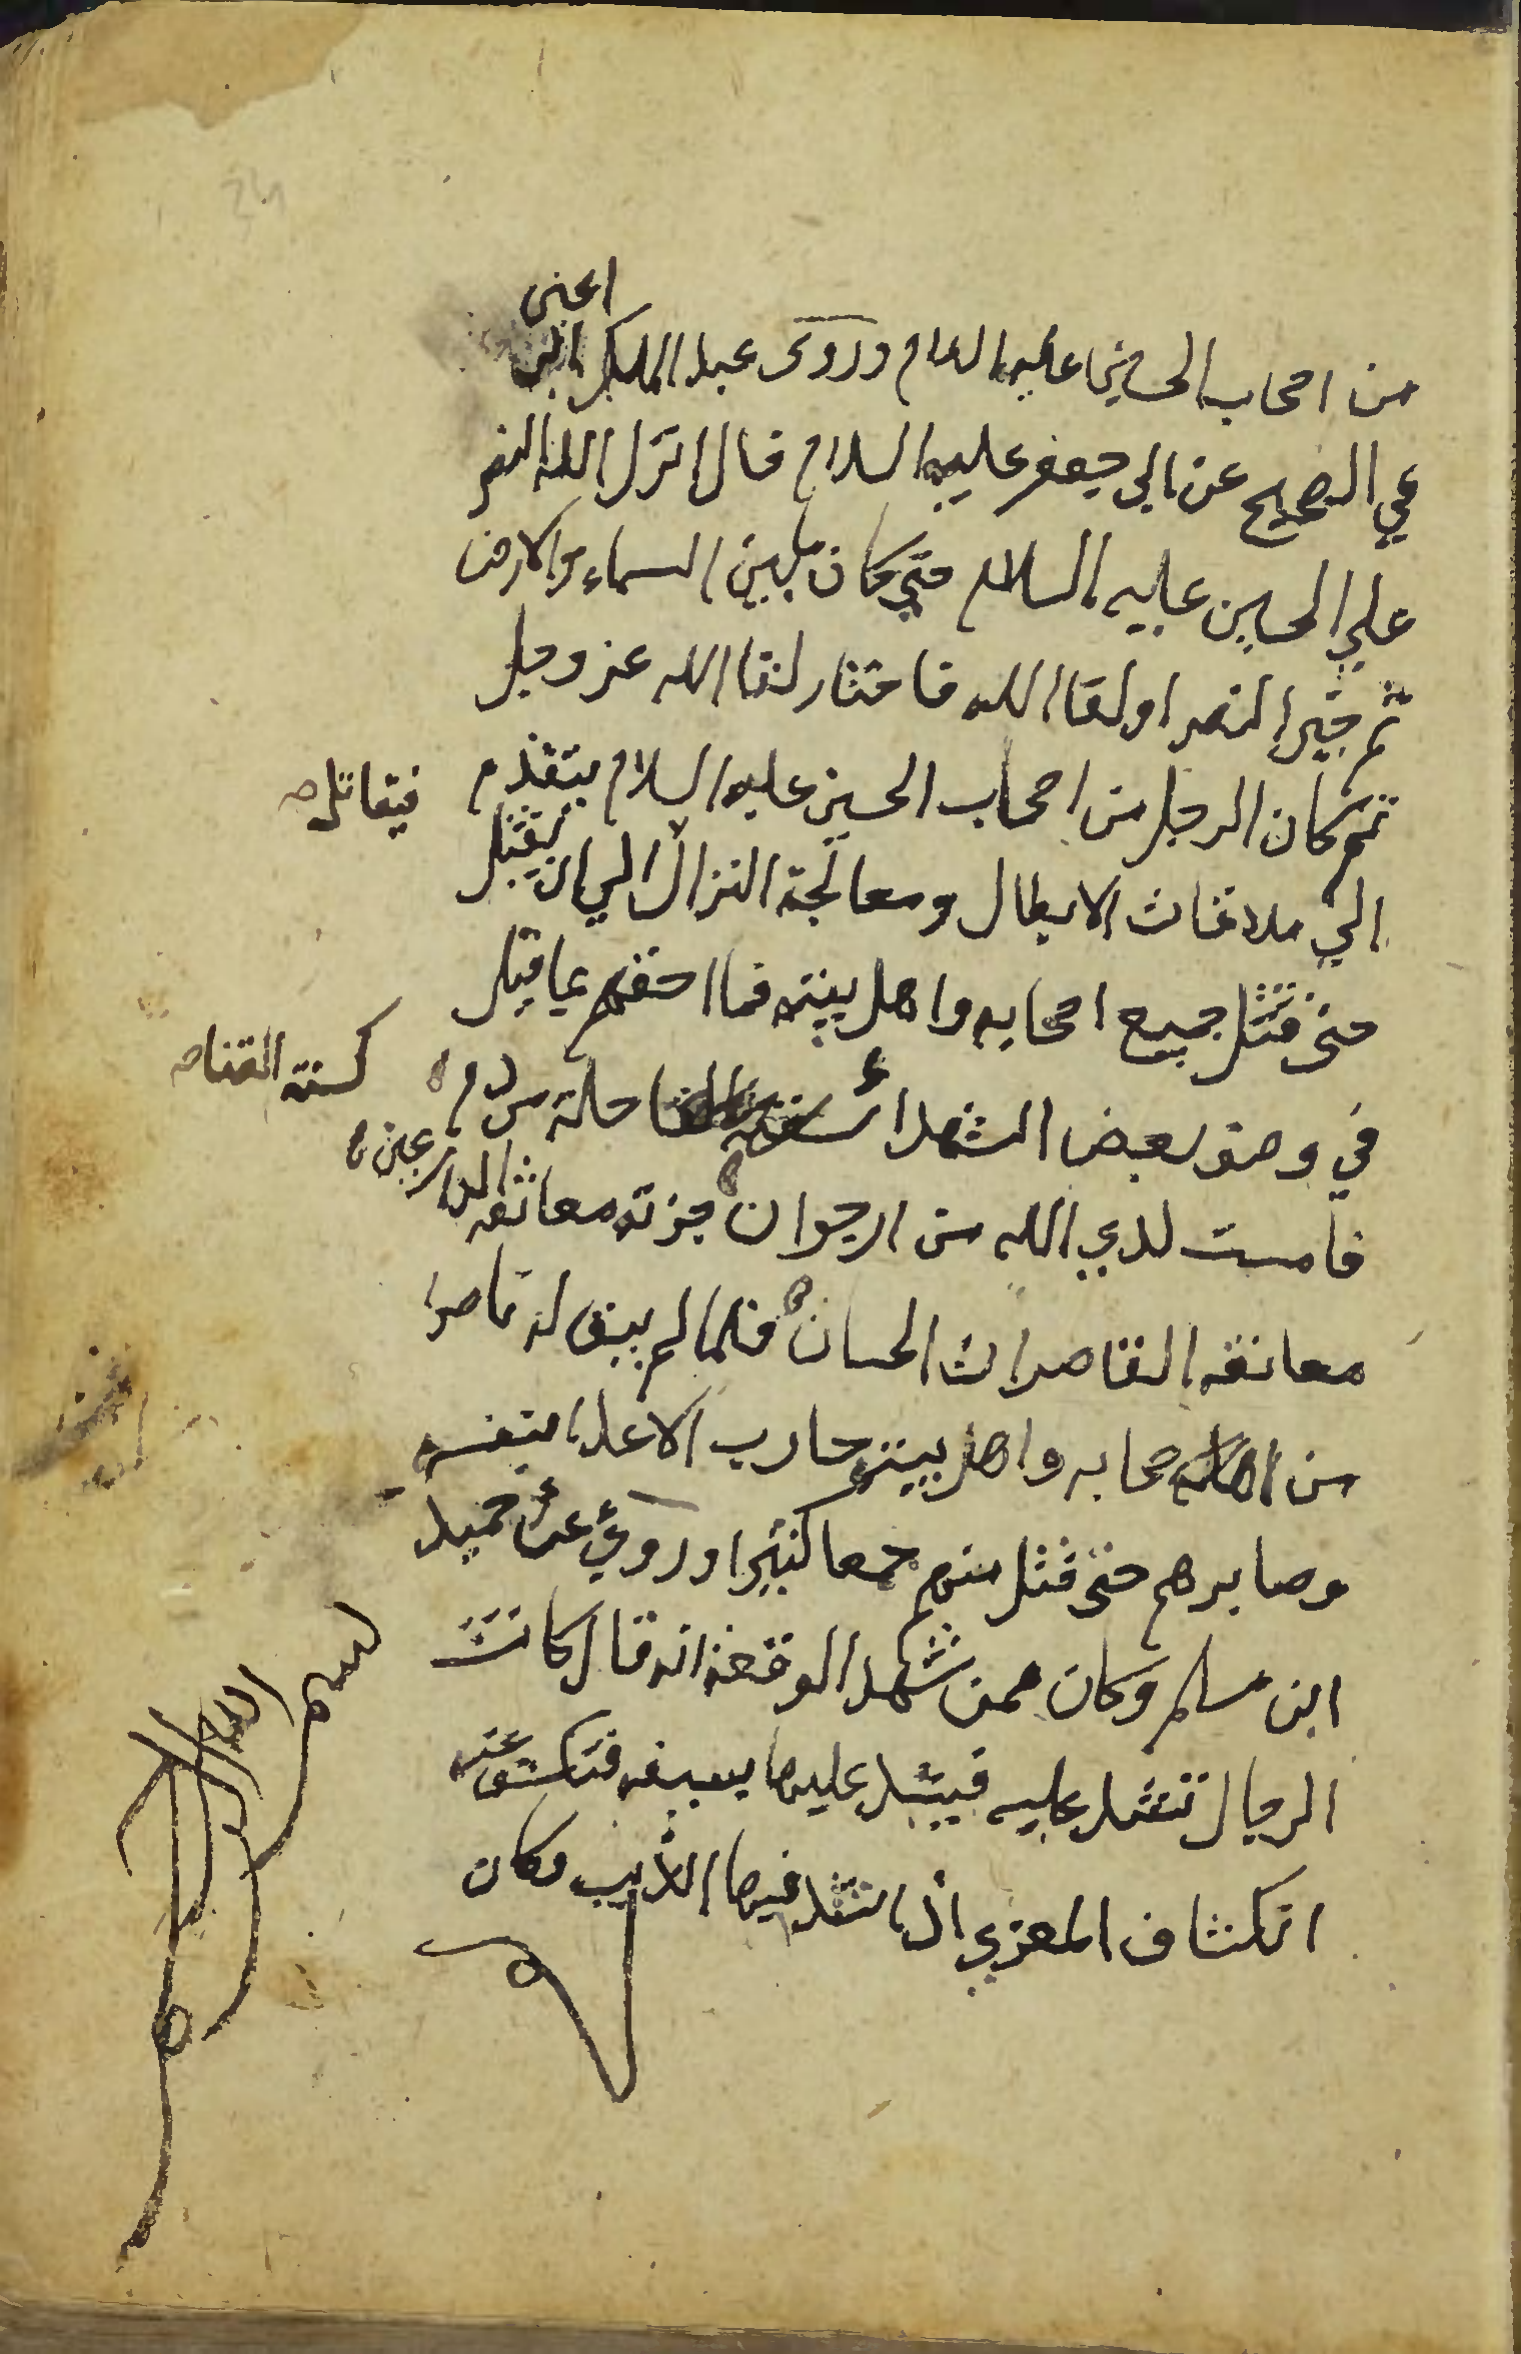 اعين
من اصحاب الحسين عليه السلام وروى عبد الملك ابن
في الصحيح عن ابي جعفر عليه السلام قال انزل الله النصر
علي الحسين عليه السلام حتي كان ما بين السماء والارض
ثم خير النصر او لقا الله فاختار لقا الله عز وجل
ثم كان الرجل من اصحاب الحسين عليه السلام يتقدم
فيقاتل صح
الي ملاقات الابطال ومعالجة النزال الي ان يقتل
حتى قتل جميع اصحابه واهل بيته فما احقهم بما قيل
في وصف بعض الشهداء حلة من دم
كسته القنا صح
فامست لدي الله من ارجوان جزته معانقة الدارعين
معانقة القاصرات الحسان فلما لم يبق له ناصرا
من اصحابه واهل بيته حارب الاعداء بنفسه
وصابرهم حتى قتل منهم جمعا كثيرا وروي عن حميد
ابن مسلم وكان ممن شهد الوقعة انه قال كانت
الرجال تشد عليه فيشد عليها بسيفه فتنكشف عنه
انكشاف المعزي اذا شد فيها الذيب وكان
بسم الله